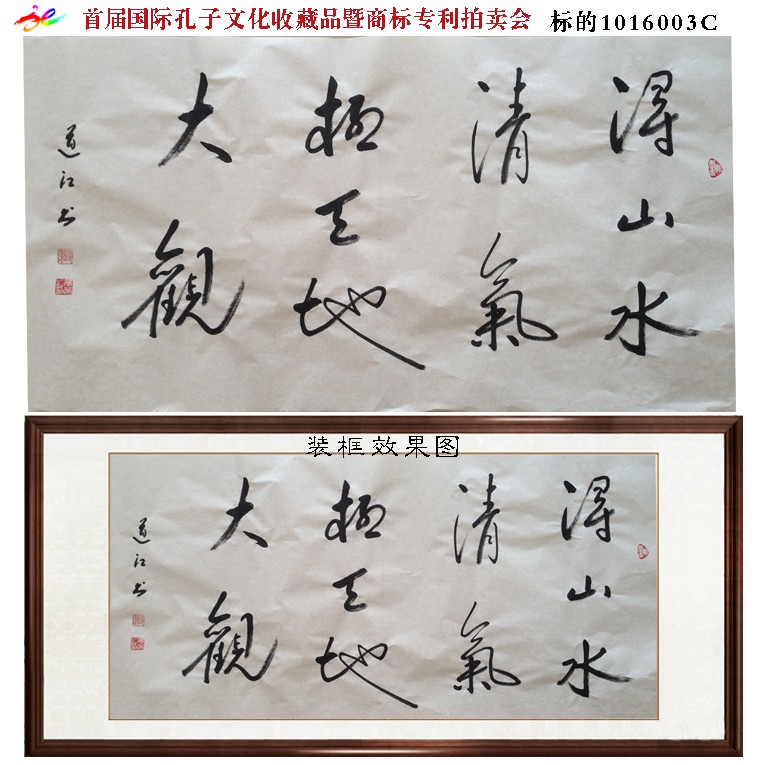 首届国际孔子文化收藏品暨商标专利拍卖会 标的1016003C
得山水
清氣
極天地
大觀
道江书
装框效果图
得山水
清氣
極天地
大觀
道江书